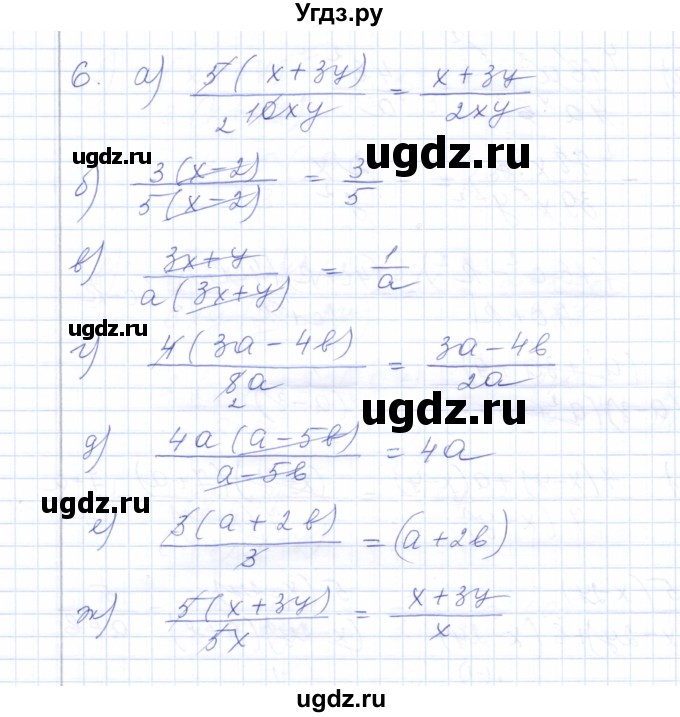 Угдз.ру
6. а) 5(x+3y)/10xy 2 = x+3y/2xy
ugdz.ru
ugdz.ru
б) 3(x-2)/5(x-2) = 3/5
в) 3x+y/a(3x+y) = 1/a
ugdz.ru
г) 4(3a-4b)/8a 2 = 3a-4b/2a
ugdz.ru
д) 4a(a-5b)/a-5b = 4a
ugdz.ru
е) 3(a+2b)/3 = (a+2b)
ж) 5(x+3y)/5x = x+3y/x
ugdz.ru